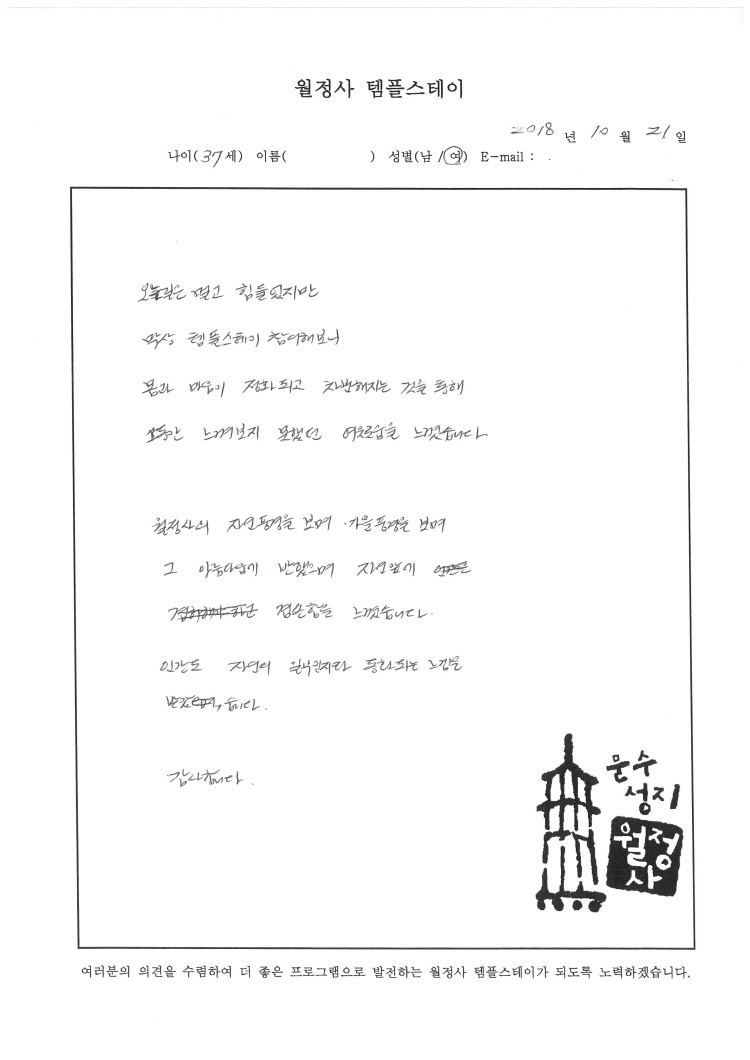 월정사 템플스테이
2018 년 10 월 21 일
나이(37세) 이름( ) 성별(남 / 여) E-mail :
오는길은 멀고 힘들었지만
막상 템플스테이 참여해보니
몸과 마음이 정화되고 차분해지는 것을 통해
그동안 느껴보지 못했던 여유로움을 느꼈습니다.
월정사의 자연풍경을 보며 가을풍경을 보며
그 아름다움에 반했으며 자연앞에
겸손함을 느꼈습니다.
인간도 자연의 일부인지라 동화되는 느낌을
받았습니다.
감사합니다.
문수
성지
월정
사
여러분의 의견을 수렴하여 더 좋은 프로그램으로 발전하는 월정사 템플스테이가 되도록 노력하겠습니다.